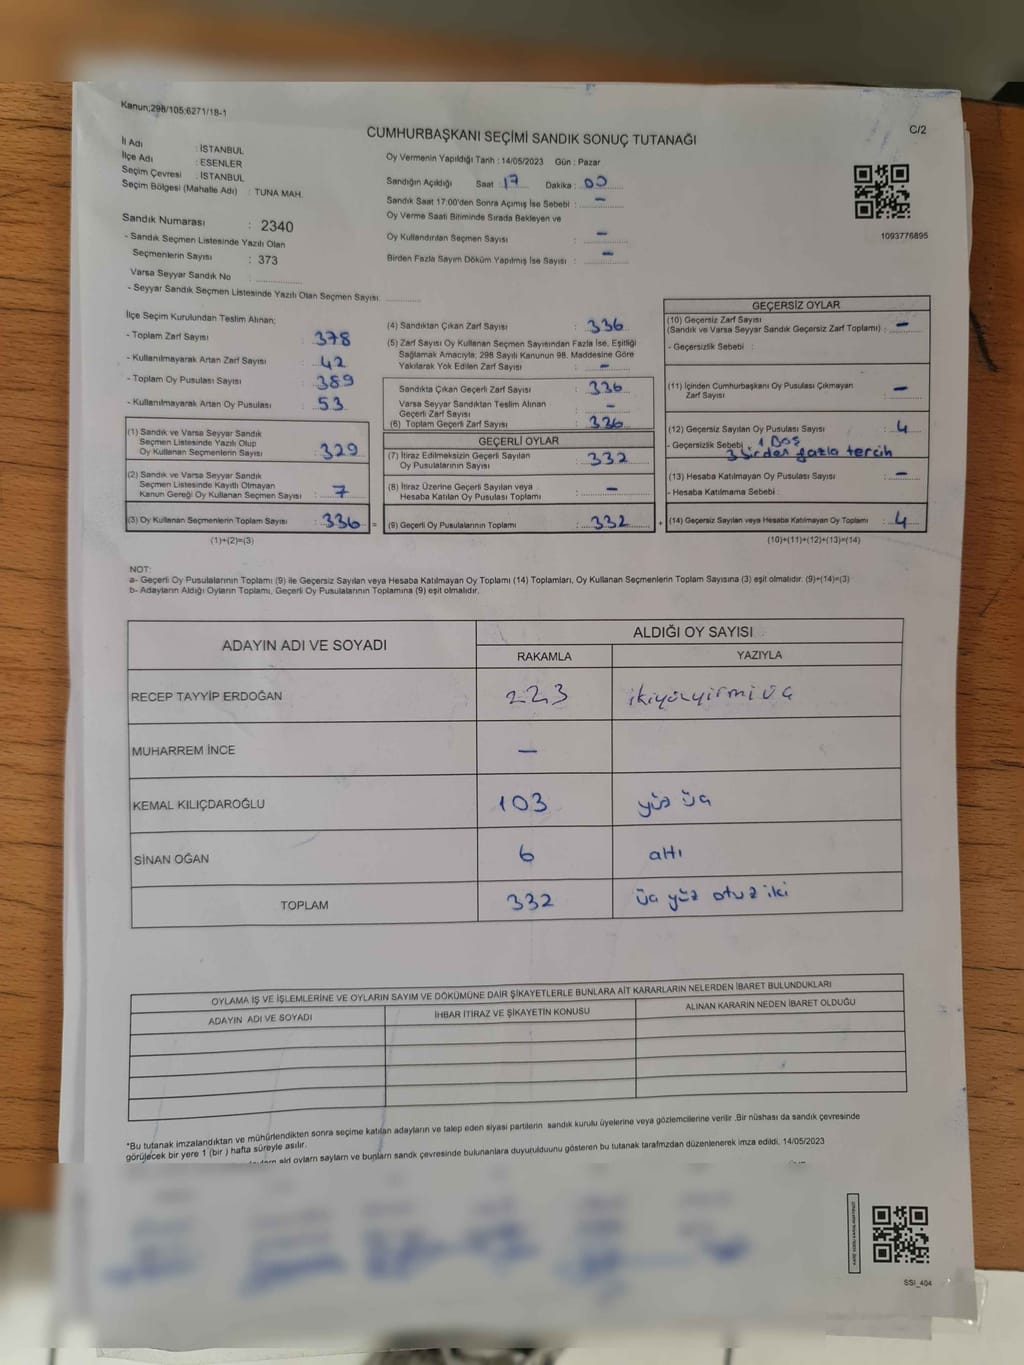 Kanun;298/105;6271/18-1
CUMHURBAŞKANI SEÇİMİ SANDIK SONUÇ TUTANAĞI
C/2
İl Adı : İSTANBUL
İlçe Adı : ESENLER
Seçim Çevresi : İSTANBUL
Seçim Bölgesi (Mahalle Adı) : TUNA MAH.
Oy Vermenin Yapıldığı Tarih : 14/05/2023 Gün : Pazar
Sandığın Açıldığı Saat : 17 Dakika : 00
Sandık Saat 17:00'den Sonra Açımış İse Sebebi : -
Oy Verme Saati Bitiminde Sırada Bekleyen ve
Oy Kullandırılan Seçmen Sayısı : -
Birden Fazla Sayım Döküm Yapılmış İse Sayısı : -
1093776895
Sandık Numarası : 2340
- Sandık Seçmen Listesinde Yazılı Olan
Seçmenlerin Sayısı : 373
Varsa Seyyar Sandık No :
- Seyyar Sandık Seçmen Listesinde Yazılı Olan Seçmen Sayısı:
İlçe Seçim Kurulundan Teslim Alınan;
- Toplam Zarf Sayısı : 378
- Kullanılmayarak Artan Zarf Sayısı : 42
- Toplam Oy Pusulası Sayısı : 389
- Kullanılmayarak Artan Oy Pusulası : 53
(1) Sandık ve Varsa Seyyar Sandık
Seçmen Listesinde Yazılı Olup
Oy Kullanan Seçmenlerin Sayısı : 329
(2) Sandık ve Varsa Seyyar Sandık
Seçmen Listesinde Kayıtlı Olmayan
Kanun Gereği Oy Kullanan Seçmen Sayısı : 7
(3) Oy Kullanan Seçmenlerin Toplam Sayısı : 336 =
(1)+(2)=(3)
(4) Sandıktan Çıkan Zarf Sayısı : 336
(5) Zarf Sayısı Oy Kullanan Seçmen Sayısından Fazla İse, Eşitliği
Sağlamak Amacıyla; 298 Sayılı Kanunun 98. Maddesine Göre
Yakılarak Yok Edilen Zarf Sayısı : -
Sandıkta Çıkan Geçerli Zarf Sayısı : 336
Varsa Seyyar Sandıktan Teslim Alınan
Geçerli Zarf Sayısı : -
(6) Toplam Geçerli Zarf Sayısı : 336
GEÇERLİ OYLAR
(7) İtiraz Edilmeksizin Geçerli Sayılan
Oy Pusulalarının Sayısı : 332
(8) İtiraz Üzerine Geçerli Sayılan veya
Hesaba Katılan Oy Pusulası Toplamı : -
(9) Geçerli Oy Pusulalarının Toplamı : 332 +
GEÇERSİZ OYLAR
(10) Geçersiz Zarf Sayısı
(Sandık ve Varsa Seyyar Sandık Geçersiz Zarf Toplamı) : -
- Geçersizlik Sebebi :
(11) İçinden Cumhurbaşkanı Oy Pusulası Çıkmayan
Zarf Sayısı : -
(12) Geçersiz Sayılan Oy Pusulası Sayısı : 4
- Geçersizlik Sebebi : 1 Boş
3 birden fazla tercih
(13) Hesaba Katılmayan Oy Pusulası Sayısı : -
- Hesaba Katılmama Sebebi :
(14) Geçersiz Sayılan veya Hesaba Katılmayan Oy Toplamı : 4
(10)+(11)+(12)+(13)=(14)
NOT:
a- Geçerli Oy Pusulalarının Toplamı (9) ile Geçersiz Sayılan veya Hesaba Katılmayan Oy Toplamı (14) Toplamları, Oy Kullanan Seçmenlerin Toplam Sayısına (3) eşit olmalıdır. (9)+(14)=(3)
b- Adayların Aldığı Oyların Toplamı, Geçerli Oy Pusulalarının Toplamına (9) eşit olmalıdır.
ADAYIN ADI VE SOYADI
ALDIĞI OY SAYISI
RAKAMLA YAZIYLA
RECEP TAYYİP ERDOĞAN 223 ikiyüzyirmi üç
MUHARREM İNCE -
KEMAL KILIÇDAROĞLU 103 yüz üç
SİNAN OĞAN 6 altı
TOPLAM 332 üç yüz otuz iki
OYLAMA İŞ VE İŞLEMLERİNE VE OYLARIN SAYIM VE DÖKÜMÜNE DAİR ŞİKAYETLERLE BUNLARA AİT KARARLARIN NELERDEN İBARET BULUNDUKLARI
ADAYIN ADI VE SOYADI İHBAR İTİRAZ VE ŞİKAYETİN KONUSU ALINAN KARARIN NEDEN İBARET OLDUĞU
*Bu tutanak imzalandıktan ve mühürlendikten sonra seçime katılan adayların ve talep eden siyasi partilerin sandık kurulu üyelerine veya gözlemcilerine verilir .Bir nüshası da sandık çevresinde
görülecek bir yere 1 (bir ) hafta süreyle asılır.
oyların sayılarını ve bunların sandık çevresinde bulunanlara duyurulduunu gösteren bu tutanak tarafımızdan düzenlenerek imza edildi. 14/05/2023
SSI_404